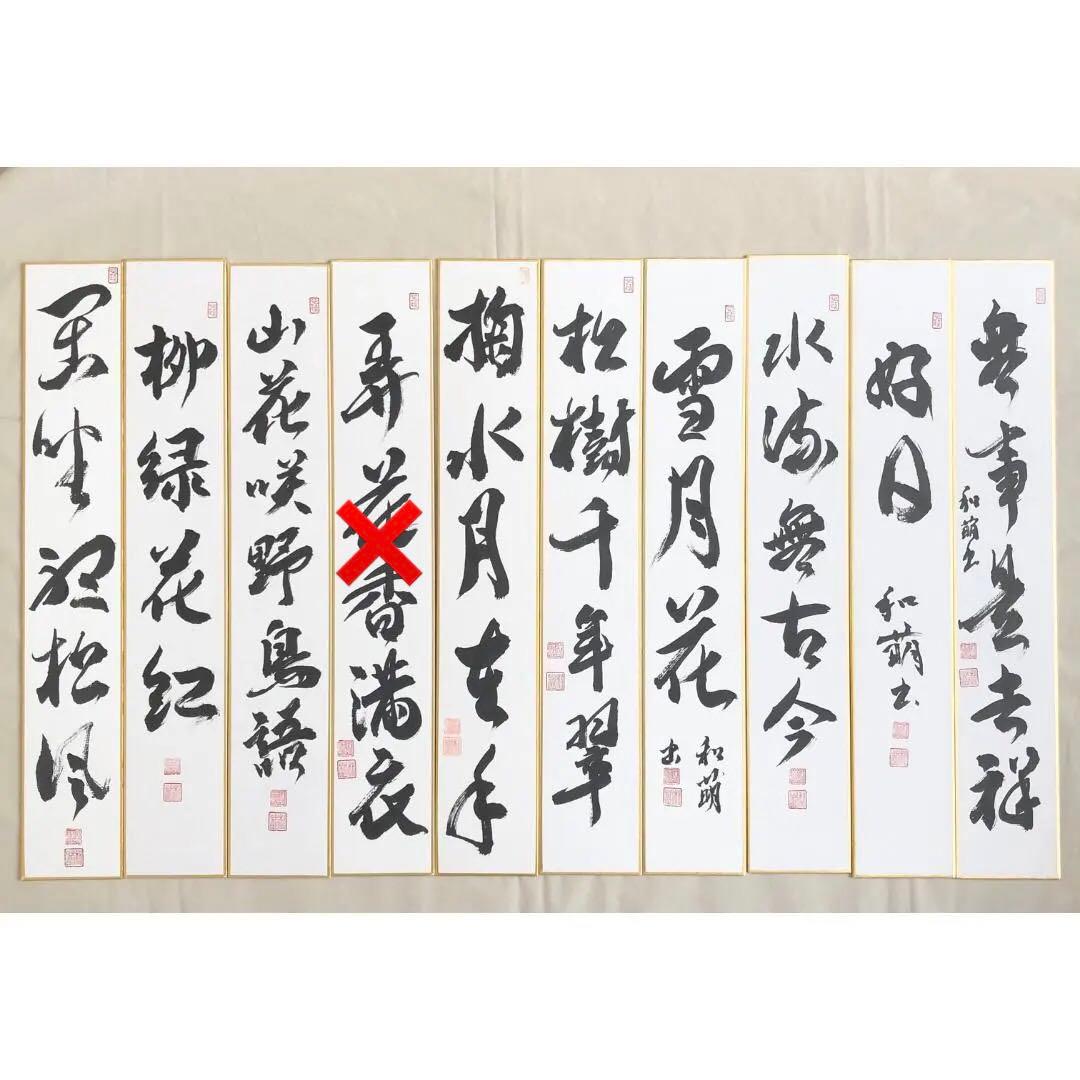 無事是吉祥
和萌書
好日
和萌書
水流無古今
雪月花
和萌書
松樹千年翠
掬水月在手
弄花香満衣
山花咲野鳥語
柳緑花紅
閑坐聴松風